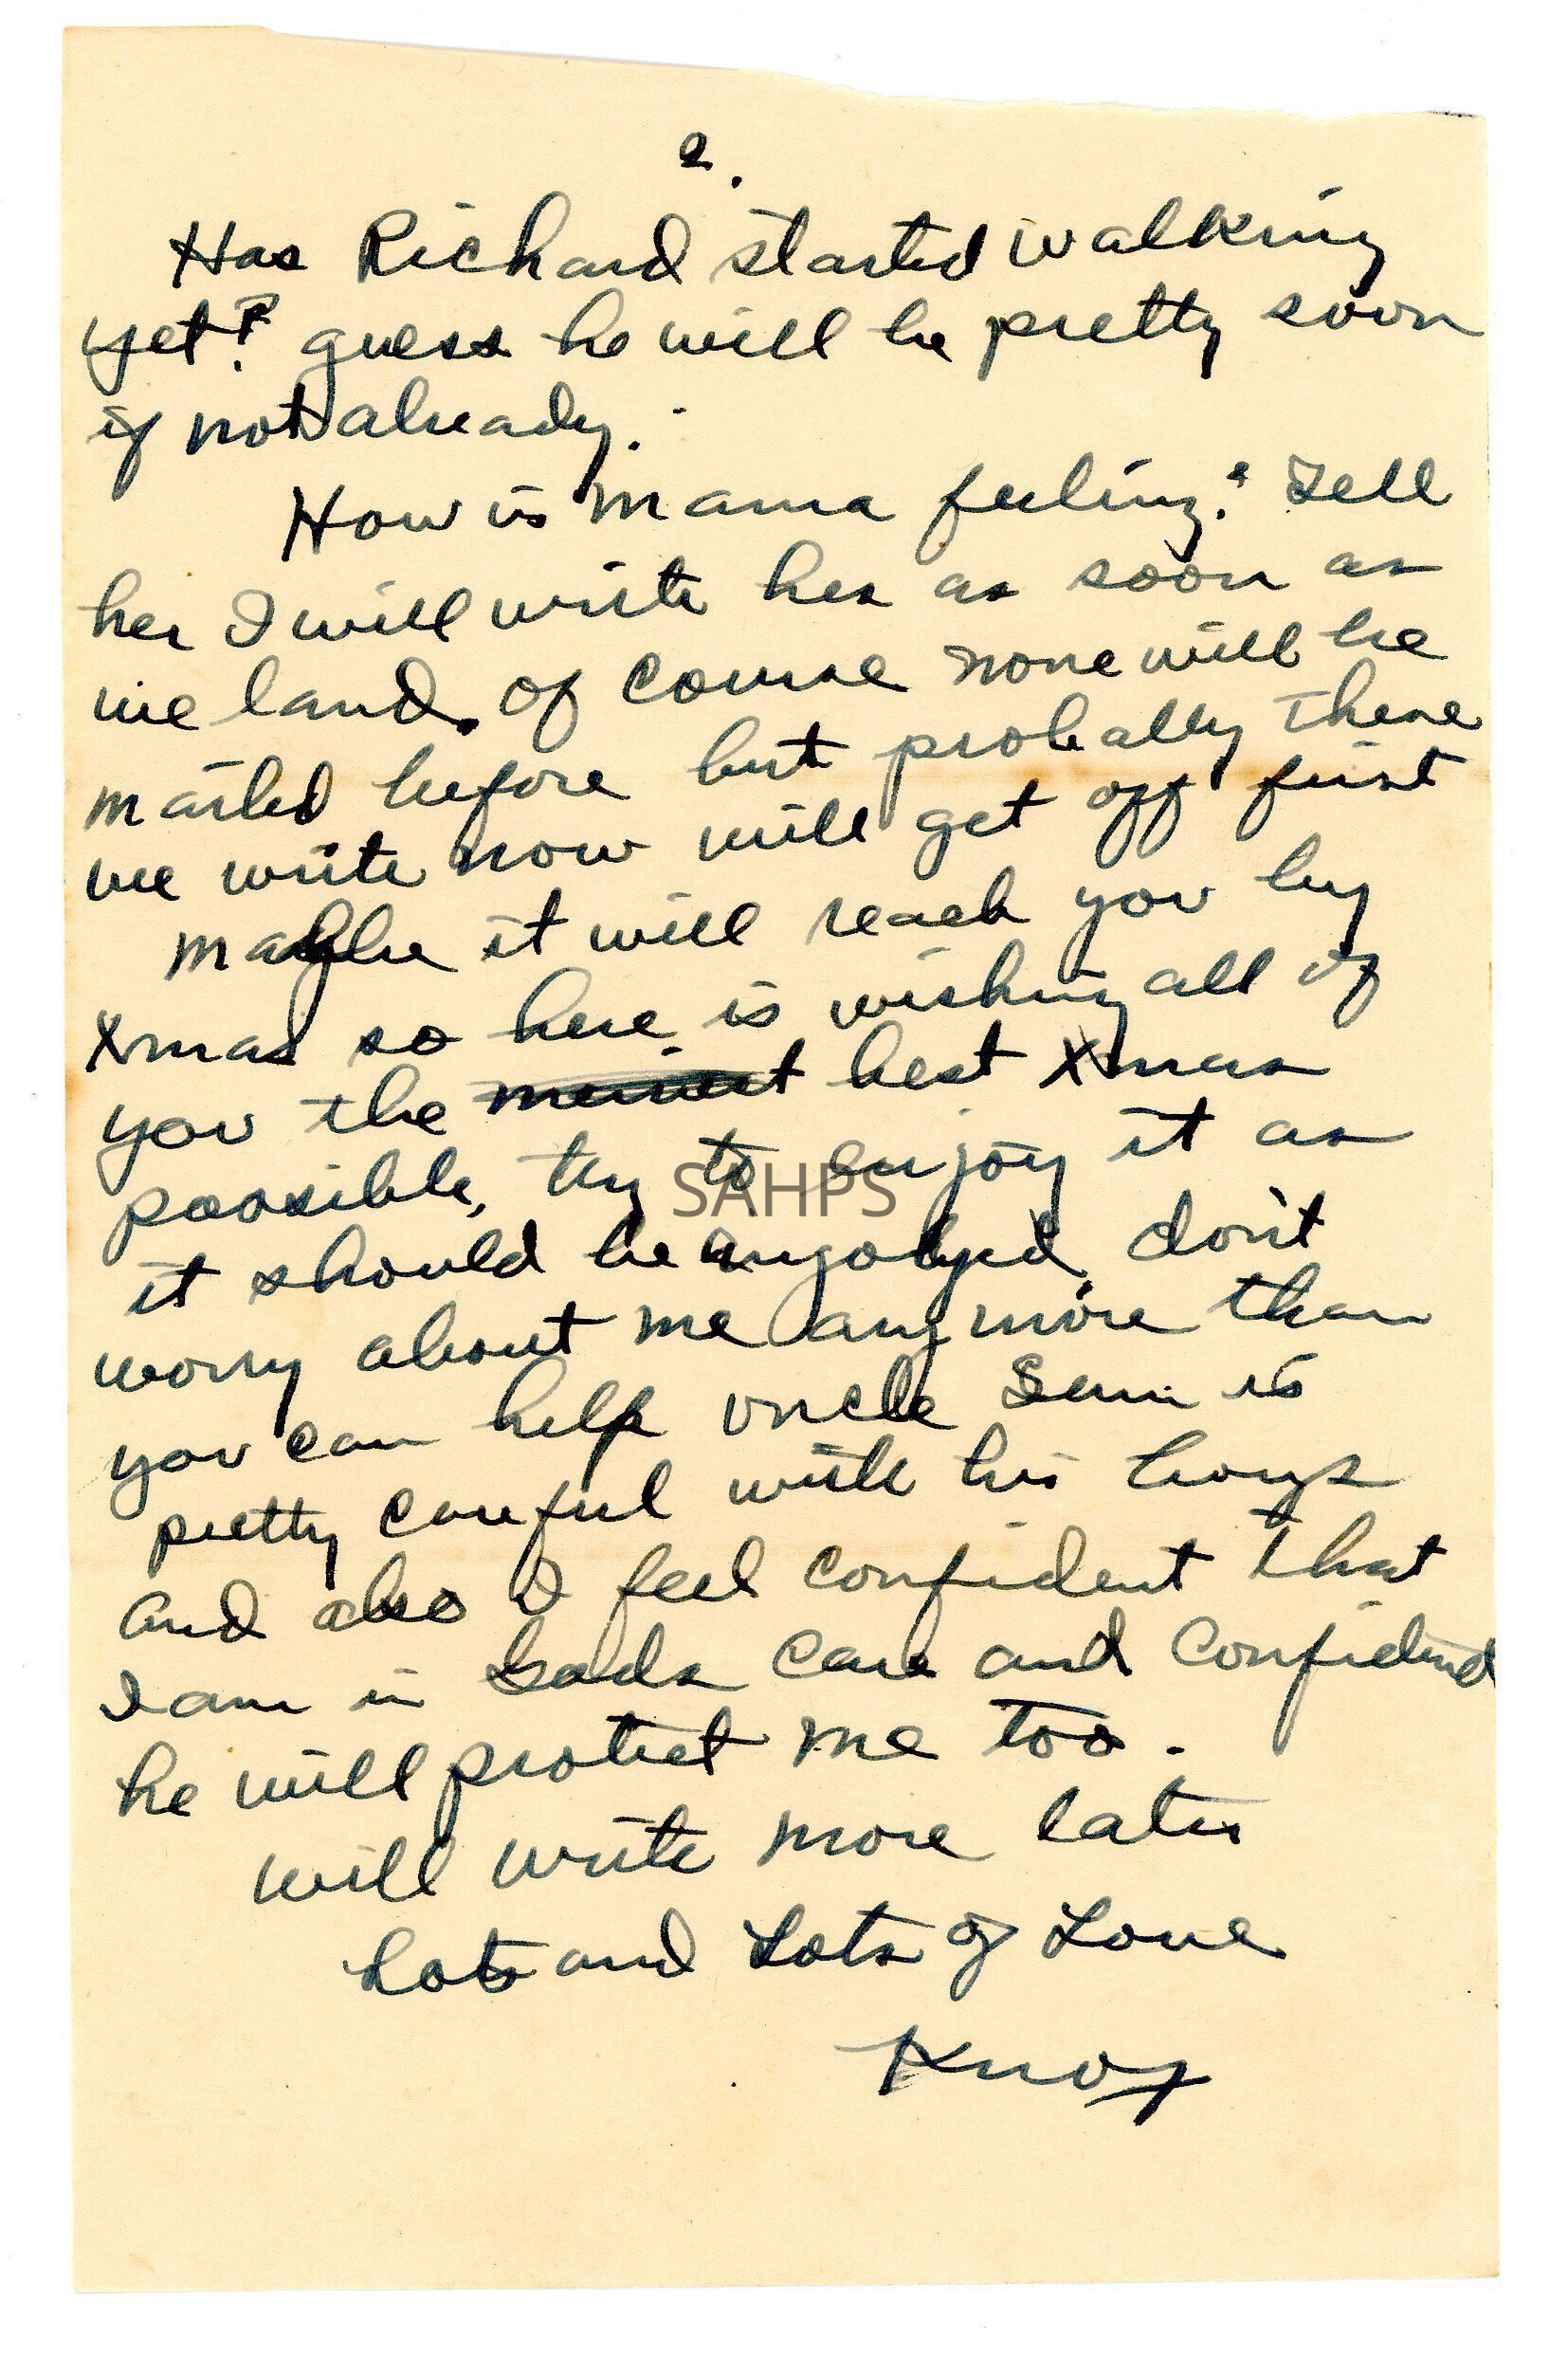 2.
Has Richard started walking
yet? guess he will be pretty soon
if not already.
How is Mama feeling? Tell
her I will write her as soon as
we land. of course none will be
mailed before but probally these
we write now will get off first
maybe it will reach you by
Xmas so here is wishing all of
you the merriest best Xmas
possible, try to enjoy it as
SAHPS
it should be enjoyed, don't
worry about me any more than
you can help uncle Sam is
pretty careful with his boys
and also I feel confident that
I am in Gods care and confident
he will protect me too.
will write more later
Lots and Lots of Love
Knox